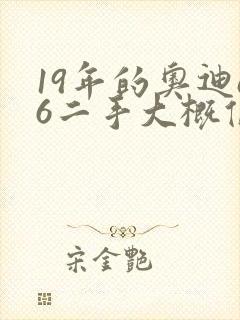 19年的奥迪
6二手大概
宋金艷